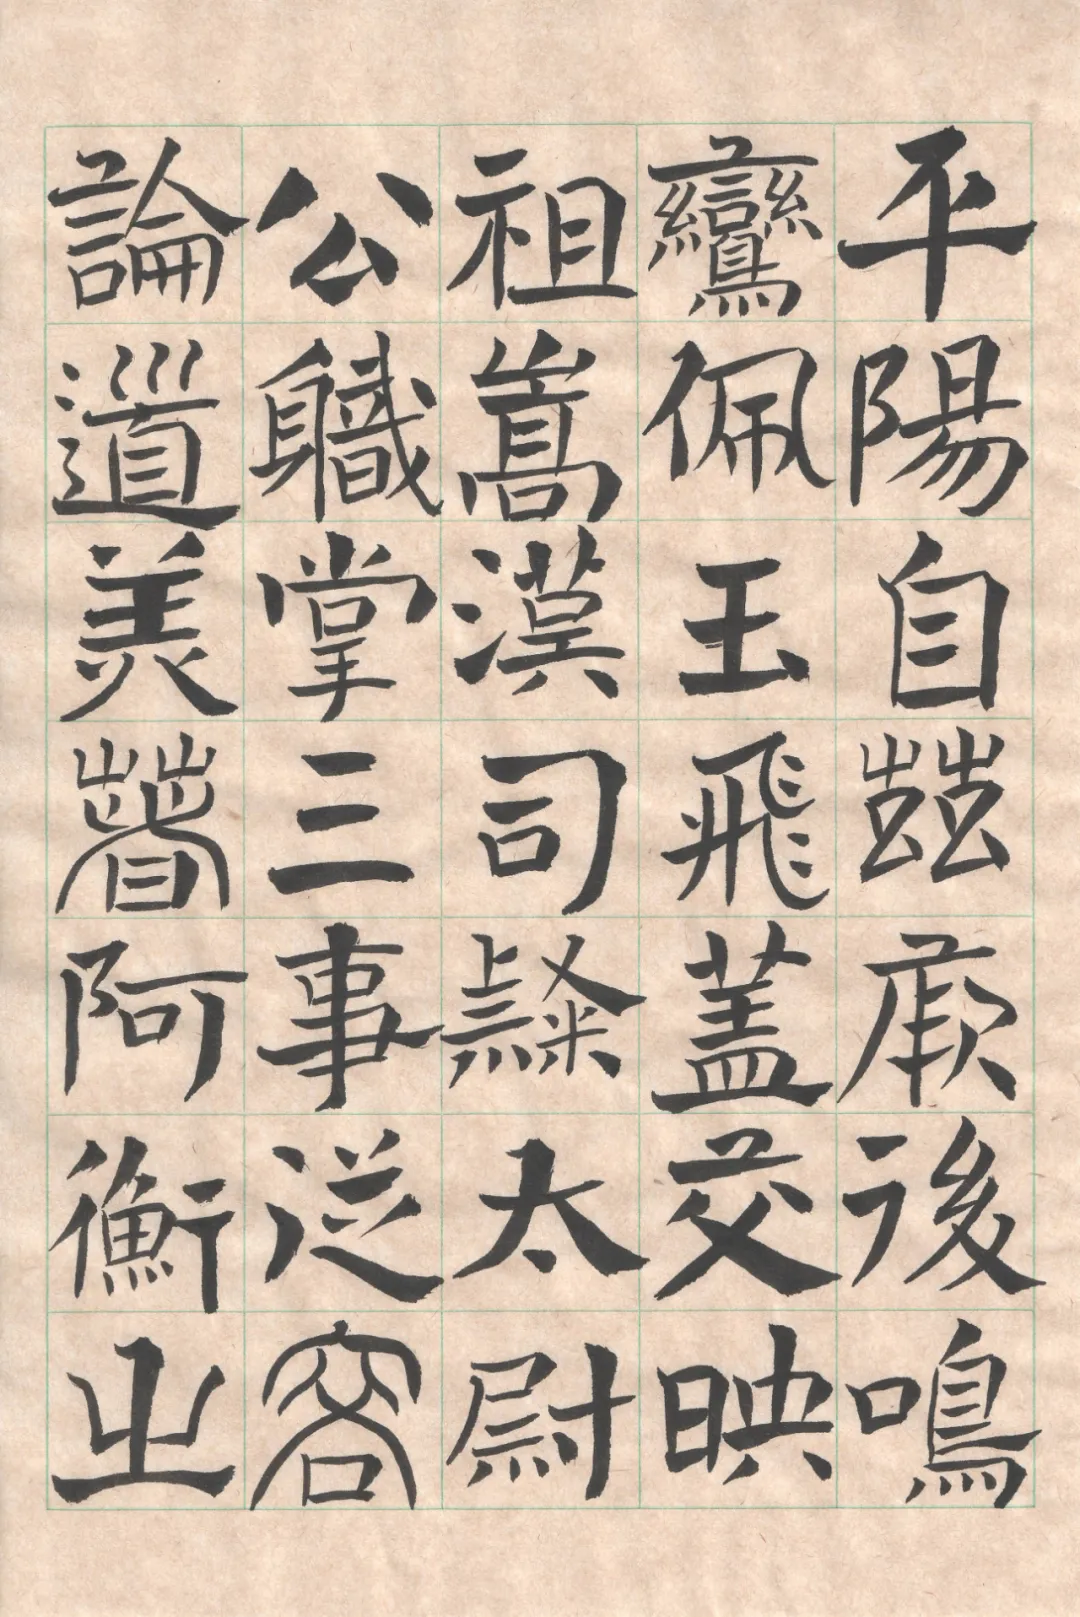 平陽自茲厥後鳴
鸞佩玉飛蓋交映
祖嵩漢司隸太尉
公職掌三事從容
論道美著阿衡之